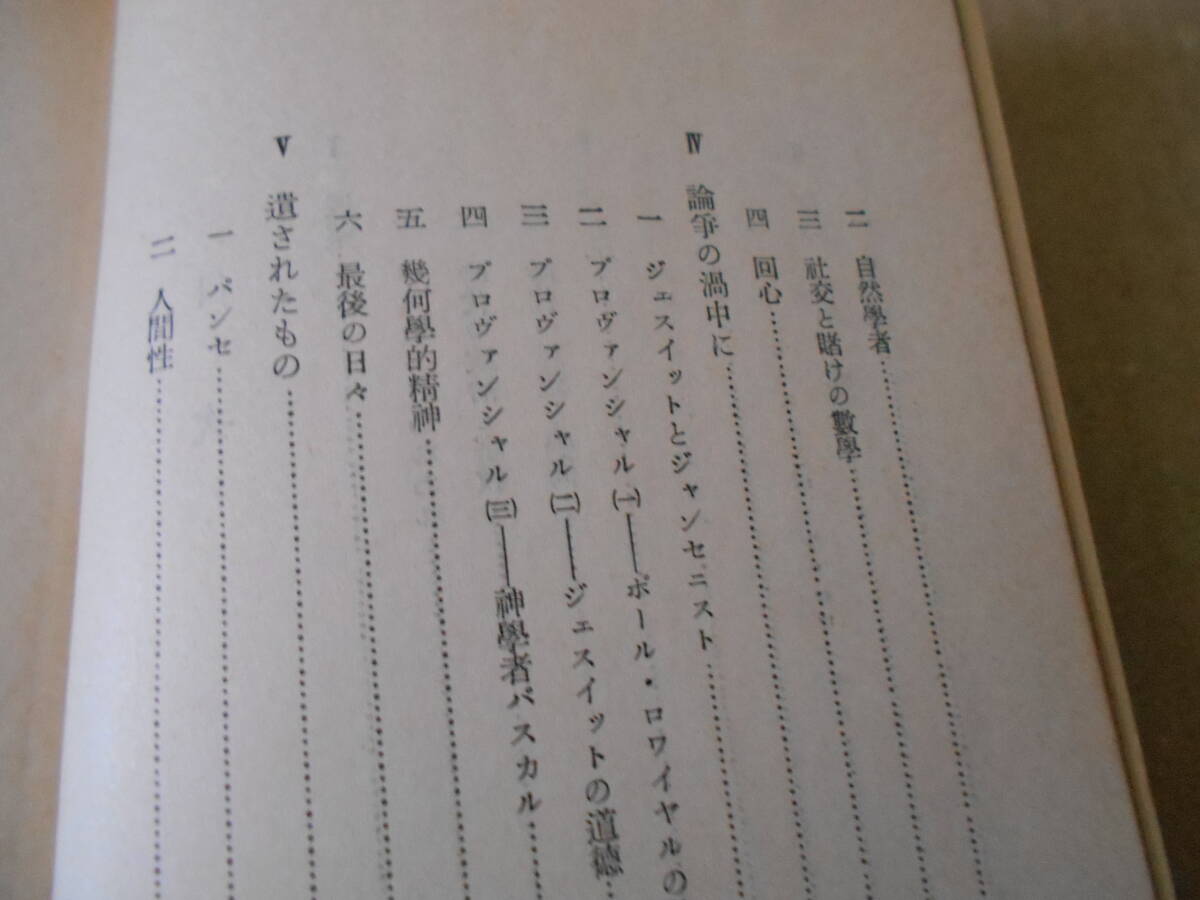 二 自然學者……………………
三 社交と賭けの數學……………………
四 回心……………………
Ⅳ 論爭の渦中に……………………
一 ジェスイットとジャンセニスト……………………
二 プロヴァンシャル㈠——ポール・ロワイヤルの
三 プロヴァンシャル㈡——ジェスイットの道德
四 プロヴァンシャル㈢——神學者パスカル……………………
五 幾何學的精神……………………
六 最後の日々……………………
Ⅴ 遺されたもの……………………
一 パンセ……………………
二 人間性……………………